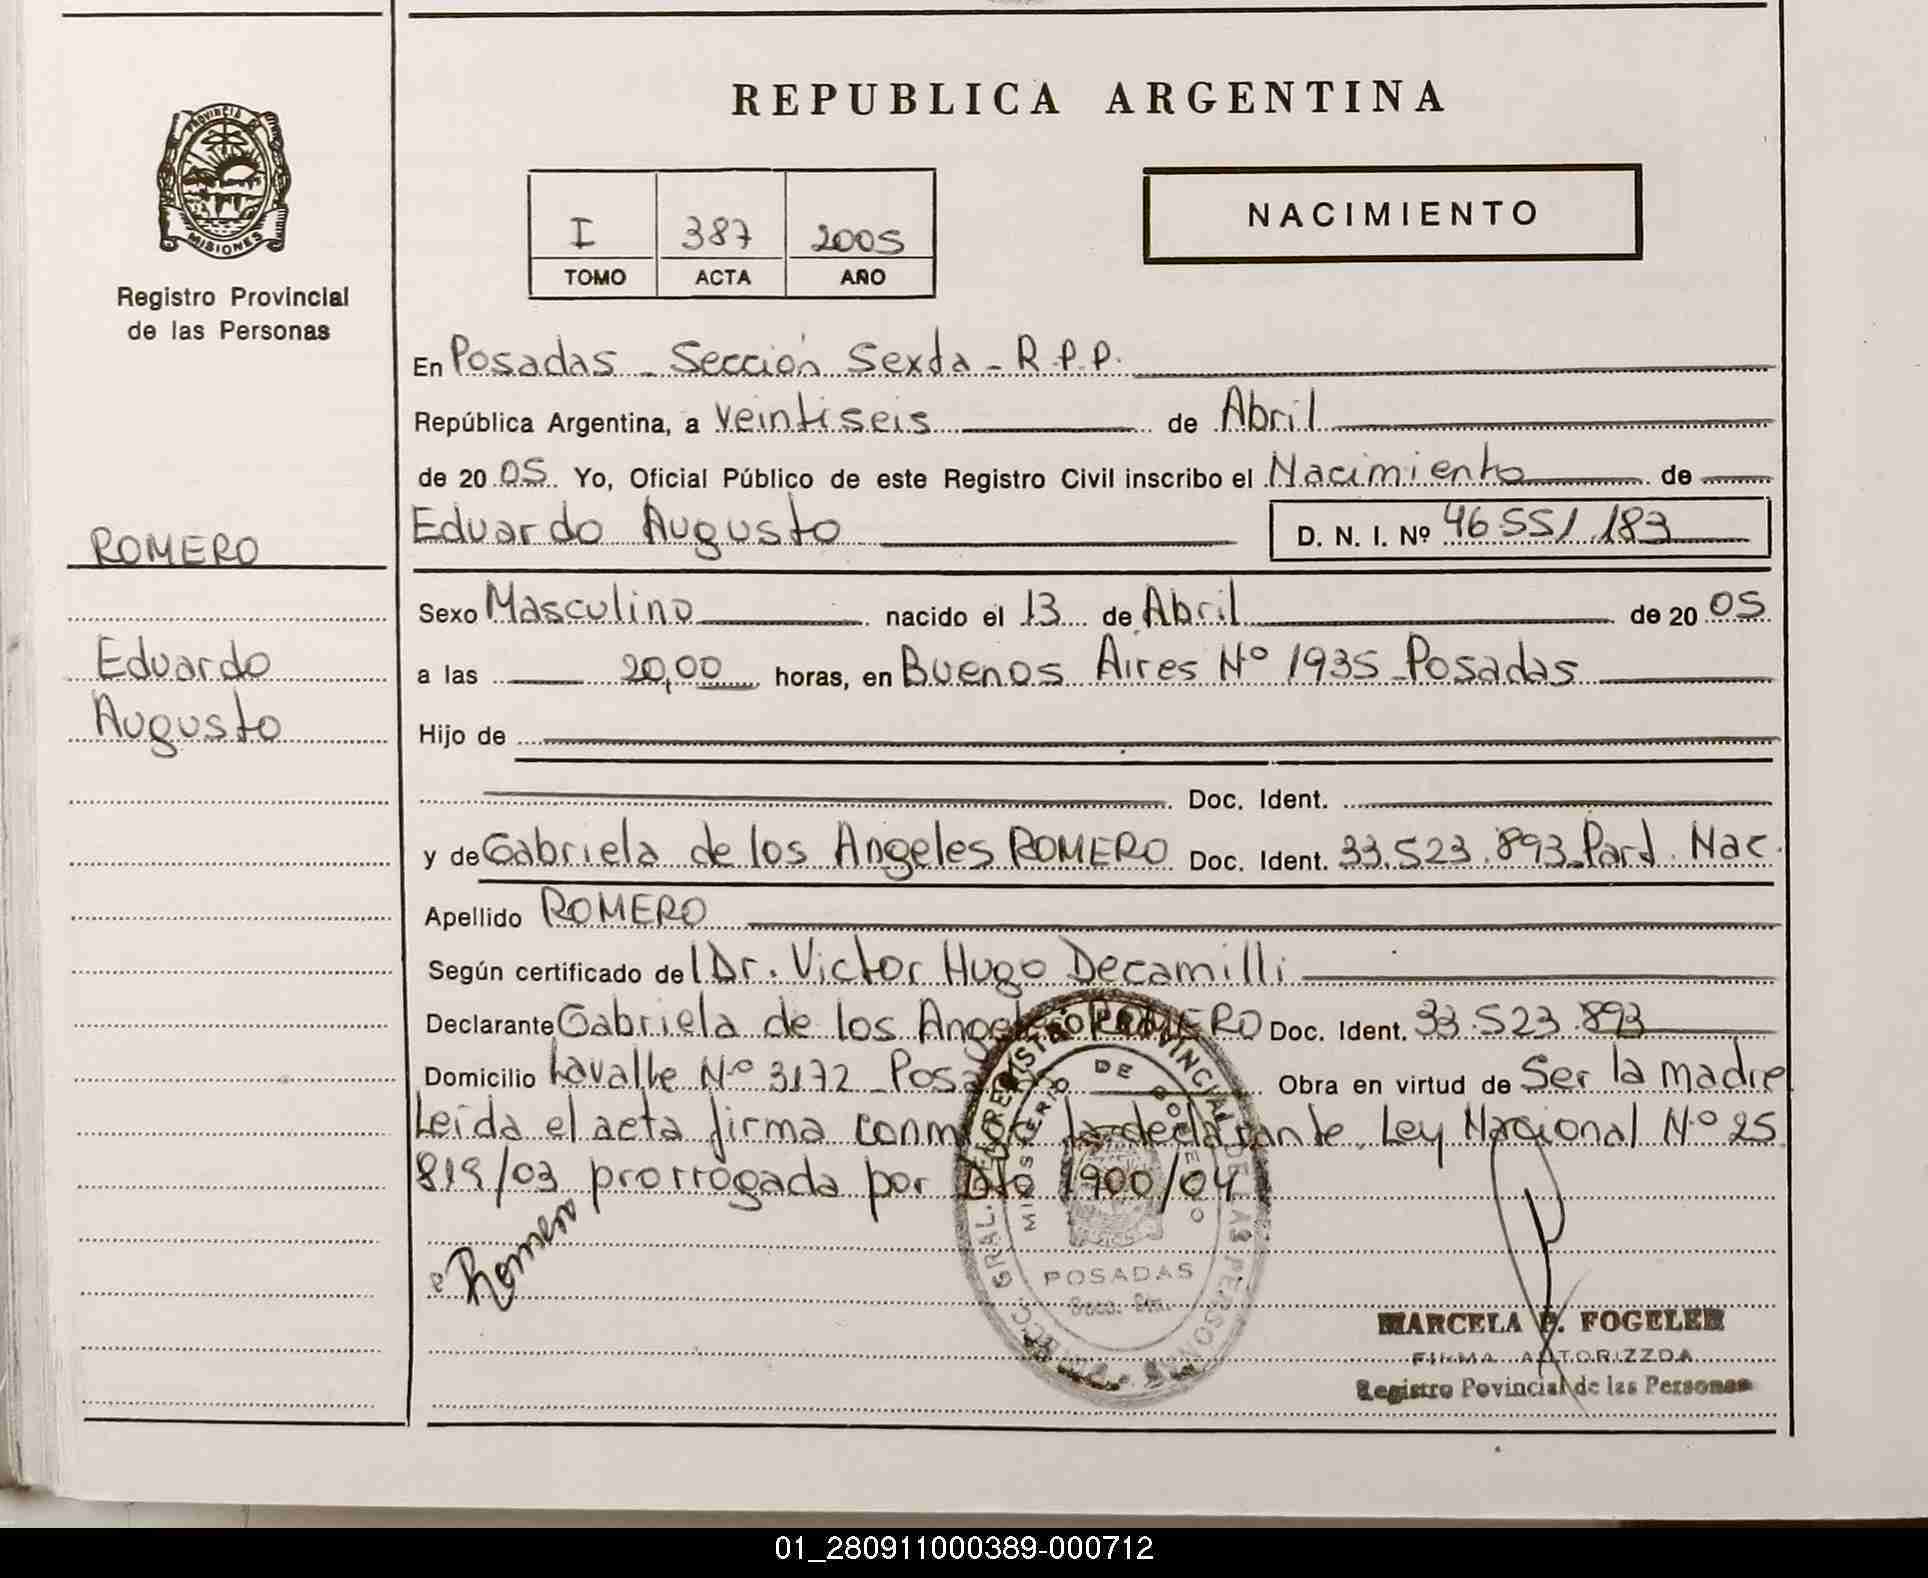 REPUBLICA ARGENTINA
PROVINCIA DE
MISIONES
Registro Provincial
de las Personas
I 387 2005
TOMO ACTA AÑO
NACIMIENTO
En Posadas - Sección Sexta - R.P.P.
República Argentina, a veintiseis de Abril
de 20 05 Yo, Oficial Público de este Registro Civil inscribo el Nacimiento de
ROMERO
Eduardo Augusto D. N. I. Nº 46.551.183
Sexo Masculino nacido el 13 de Abril de 20 05
Eduardo
Augusto
a las 20,00 horas, en Buenos Aires Nº 1935 Posadas
Hijo de
Doc. Ident.
y de Gabriela de los Angeles ROMERO Doc. Ident. 33.523.893 Pard. Nac.
Apellido ROMERO
Según certificado del Dr. Victor Hugo Decamilli
Declarante Gabriela de los Angeles ROMERO Doc. Ident. 33.523.893
Domicilio Lavalle Nº 3172 - Posadas Obra en virtud de Ser la madre
Leída el acta firma conmigo la declarante, Ley Nacional Nº 25
819/03 prorrogada por Dto 1900/04
Romero
DIRECC. GRAL. REGISTRO PROVINCIAL DE LAS PERSONAS
MINISTERIO DE GOBIERNO
POSADAS
Secc. 6ta.
MARCELA F. FOGELER
FIRMA AUTORIZZDA
Registro Povincial de las Personas
01_280911000389-000712